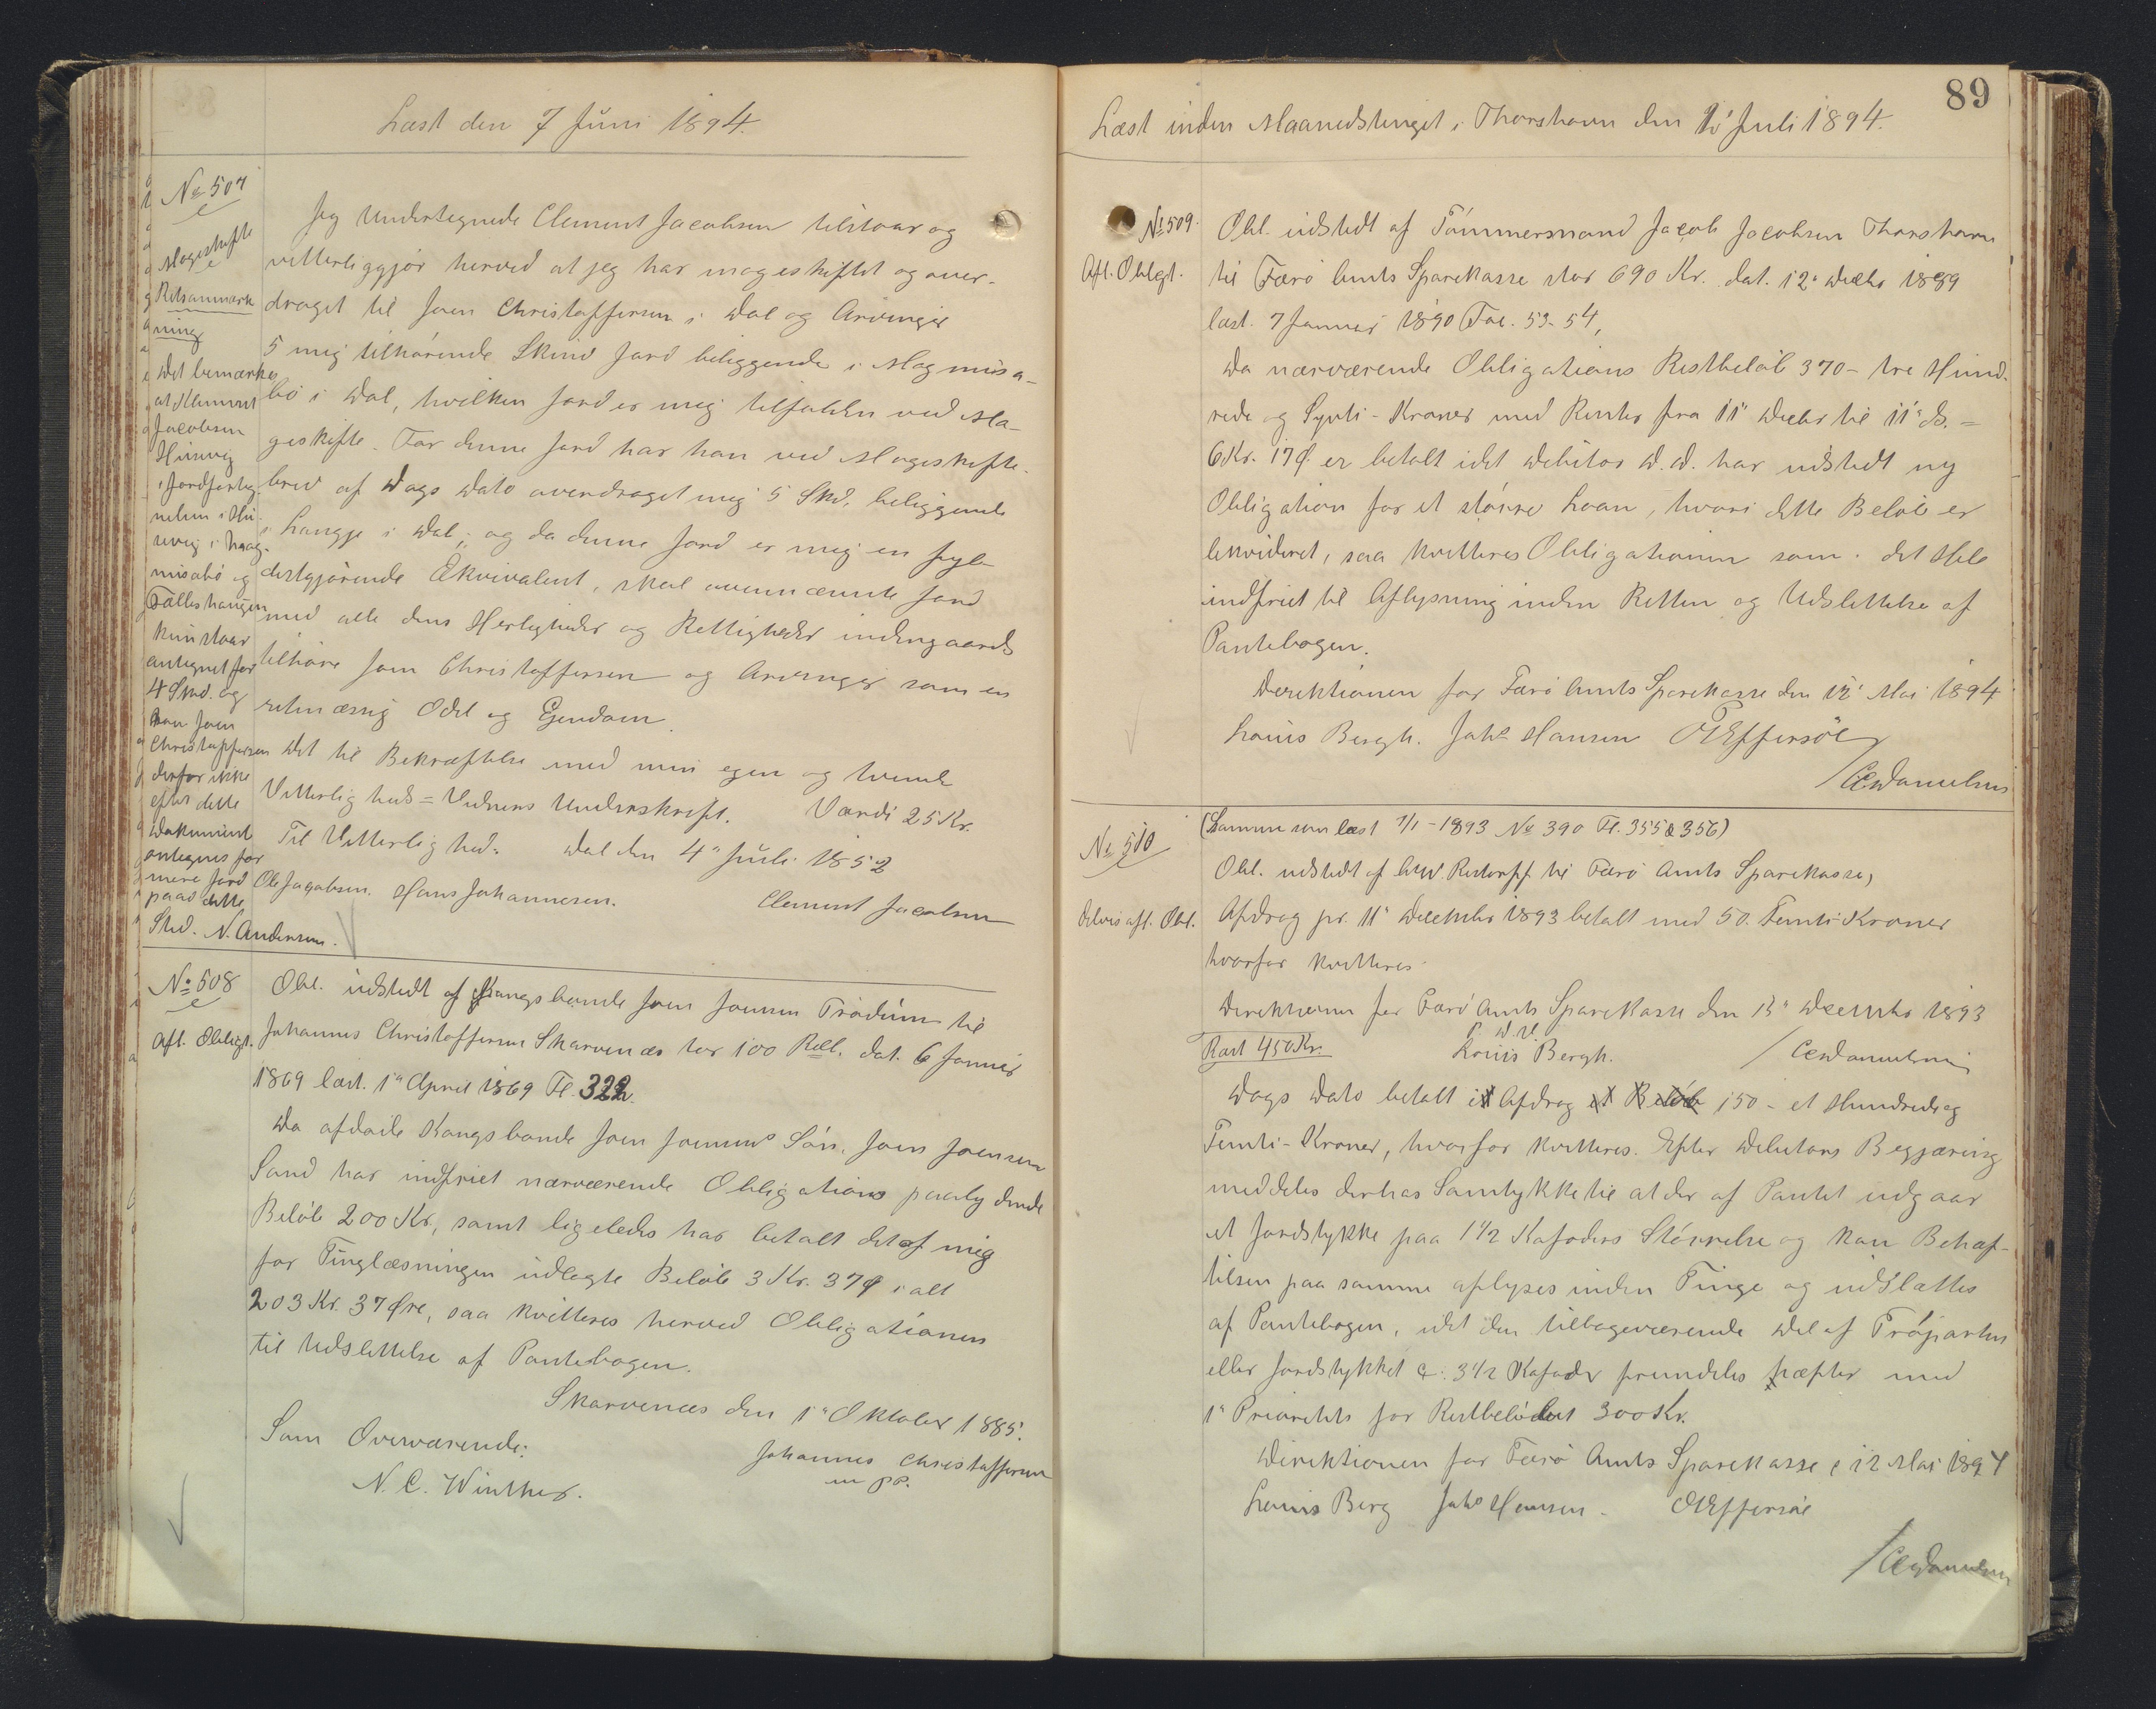 Læst den 7 Juni 1894.
No 507
Mageskifte
Retsanmærk
ning
Det bemærkes
at Klement
Jacobsen
Húsavig
i Jordforteg-
nelsen i Hú-
savig i
misabø og
Fælleshaugen
kun staar
antegnet for
4 Skd. og
kan Joen
Christoffersen
derfor ikke
efter dette
Dokument
antegnes for
mere Jord
paa dette
Sted. N. Andersen.
Jeg Undertegnede Clement Jacobsen tilstaar og
vitterliggjør herved at jeg har mageskiftet og over-
draget til Joen Christoffersen i Dal og Arvinger
5 mig tilhørende Skind Jord beliggende i Magnusa-
bø i Dal, hvilken Jord er mig tilfalden ved Ma-
geskifte. For denne Jord har han ved Mageskifte-
brev af Dags Dato overdraget mig 5 Skd. beliggende
i Langje i Dal; og da denne Jord er mig en fyl-
destgjørende Ækvivalent, skal ovennævnte Jord
med alle dens Herligheder og Rettigheder indengaards
tilhøre Joen Christoffersen og Arvinger som en
retmæssig Odel og Ejendom.
Det til Bekræftelse med min egen og tvende
Vitterligheds-Vidners Underskrift. Værdi 25 Kr.
Til Vitterlighed: Dal den 4" Juli 1852
Ole Jacobsen. Hans Johannesen. Clement Jacobsen
No 508
Afl. Obligt.
Obl. udstedt af Kongsbonde Joen Joensen Trødum til
Johannes Christoffersen Skarvenæs stor 100 Rdl. dat. 6 Januar
1869 læst. 1" April 1869 Fl. 322.
Da afdøde Kongsbonde Joen Joensens Søn, Joen Joensen
Sand har indfriet nærværende Obligations paalydende
Beløb 200 Kr., samt ligeledes har betalt det af mig
for Tinglæsningen udlagte Beløb 3 Kr. 37 Ø i alt
203 Kr. 37 Øre, saa kvitteres herved Obligationen
til Udslettelse af Pantebogen.
Skarvenæs den 1" Oktober 1885.
Som Overværende: Johannes Christoffersen
N. C. Winther. m p P.
89
Læst inden Maanedstinget i Thorshavn den 10' Juli 1894.
No 509.
Afl. Obligt.
Obl. udstedt af Tømmermand Jacob Jacobsen Thorshavn
til Færø Amts Sparekasse stor 690 Kr. dat. 12" Decbr 1889
læst. 7 Januar 1890 Fol. 53-54,
Da nærværende Obligations Restbeløb 370 - tre Hund-
rede og Sytti - Kroner med Renter fra 11" Decbr til 11" ds. =
6 Kr. 17 Ø. er betalt idet Debitor D. D. har udstedt ny
Obligation for et større Laan, hvori dette Beløb er
likvideret, saa kvitteres Obligationen som det Hele
indfriet til Aflysning inden Retten og Udslettelse af
Pantebogen.
Direktionen for Færø Amts Sparekasse den 12' Mai 1894
Louis Bergh. Johs Hansen OEffersøe
/CADanielsen
No 510
Delvis afl. Obl.
(Samme som læst 7/1 - 1893 No 390 Fl. 355 & 356)
Obl. udstedt af A.W. Restorff til Færø Amts Sparekasse,
Afdrag pr. 11" December 1893 betalt med 50. Femti Kroner
hvorfor kvitteres
Direktionen for Færø Amts Sparekasse den 13" December 1893
P. D. V.
Rest 450 Kr. Louis Bergh. /CADanielsen
Dags Dato betalt i Afdrag et Beløb 150 - et Hundrede og
Femti - Kroner, hvorfor kvitteres. Efter Debitors Begjæring
meddeles derhos Samtykke til at der af Pantet udgaar
et Jordstykke paa 1 1/2 Kafoders Størrelse og kan Behæf-
telsen paa samme aflyses inden Tinge og udslettes
af Pantebogen, idet den tilbageværende Del af Trøparten
eller Jordstykket c: 3 1/2 Kafoder fremdeles hæfter med
1" Prioritets for Restbeløbet 300 Kr.
Direktionen for Færø Amts Sparekasse 12 Mai 1894
Louis Berg Johs Hansen. OEffersøe
/CADanielsen